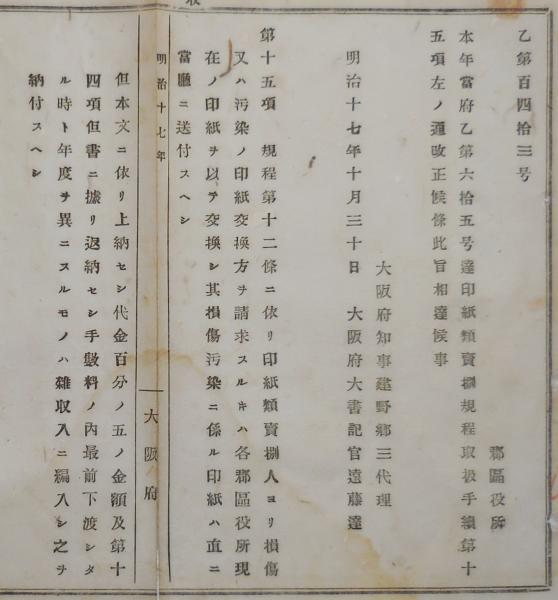 乙第百四拾三号
郡區役所
本年當府乙第六拾五号達印紙類賣捌規程取扱手續第十
五項左ノ通改正候條此旨相達候事
大阪府知事建野郷三代理
明治十七年十月三十日　大阪府大書記官遠藤達
第十五項　規程第十二條ニ依リ印紙類賣捌人ヨリ損傷
又ハ汚染ノ印紙交換方ヲ請求スルキハ各郡區役所現
在ノ印紙ヲ以テ交換シ其損傷汚染ニ係ル印紙ハ直ニ
當廳ニ送付スヘシ
明治十七年
大阪府
但本文ニ依リ上納セシ代金百分ノ五ノ金額及第十
四項但書ニ據リ返納セシ手數料ノ內最前下渡シタ
ル時ト年度ヲ異ニスルモノハ雜收入ニ編入シ之ヲ
納付スヘシ